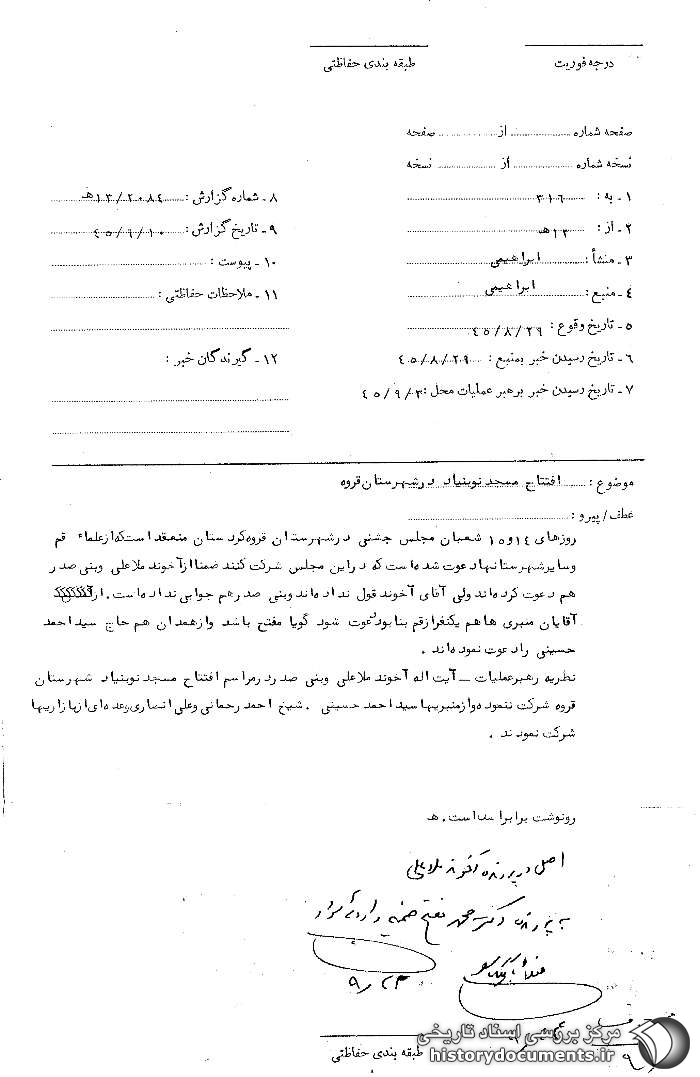 درجه فوریت
طبقه بندی حفاظتی
صفحه شماره .......... از .......... صفحه
نسخه شماره .......... از .......... نسخه
۱ ـ به : ۳۱۶
۲ ـ از : ۱۳هـ
۳ ـ منشأ : ابراهیمی
۴ ـ منبع : ابراهیمی
۵ ـ تاریخ وقوع : ۴۵/۸/۲۹
۶ ـ تاریخ رسیدن خبر بمنبع : ۴۵/۸/۲۹
۷ ـ تاریخ رسیدن خبر برهبر عملیات محل : ۴۵/۹/۳
۸ ـ شماره گزارش : ۱۳/۲۰۸۴هـ
۹ ـ تاریخ گزارش : ۴۵/۹/۱۰
۱۰ ـ پیوست :
۱۱ ـ ملاحظات حفاظتی :
۱۲ ـ گیرندگان خبر :
موضوع : افتتاح مسجد نوبنیاد درشهرستان قروه
عطف/پیرو :
روزهای ۱۴و۱۵ شعبان مجلس جشنی درشهرستان قروه کردستان منعقد است که از علماء قم
وسایر شهرستانها دعوت شده است که در این مجلس شرکت کنند ضمنا از آخوند ملاعلی وبنی صدر
هم دعوت کرده اند ولی آقای آخوند قول نداده اند وبنی صدر هم جوابی نداده است . از
آقایان منبری ها هم یکنفر از قم بنا بود دعوت شود گویا مفتح باشد وازهمدان هم حاج سید احمد
حسینی را دعوت نموده اند .
نظریه رهبرعملیات ــ آیت اله آخوند ملاعلی وبنی صدر درمراسم افتتاح مسجد نوبنیاد شهرستان
قروه شرکت ننموده واز منبریها سید احمد حسینی . شیخ احمد رحمانی وعلی انصاری وعده ای از بازاریها
شرکت نمودند .
رونوشت برابر اصل است . هـ
اصل در پرونده آخوند ملاعلی
به پرونده دکتر محمد مفتح ضمیمه و ارائه شود
۹/۲۳
طبقه بندی حفاظتی
مرکز بررسی اسناد تاریخی
historydocuments.ir